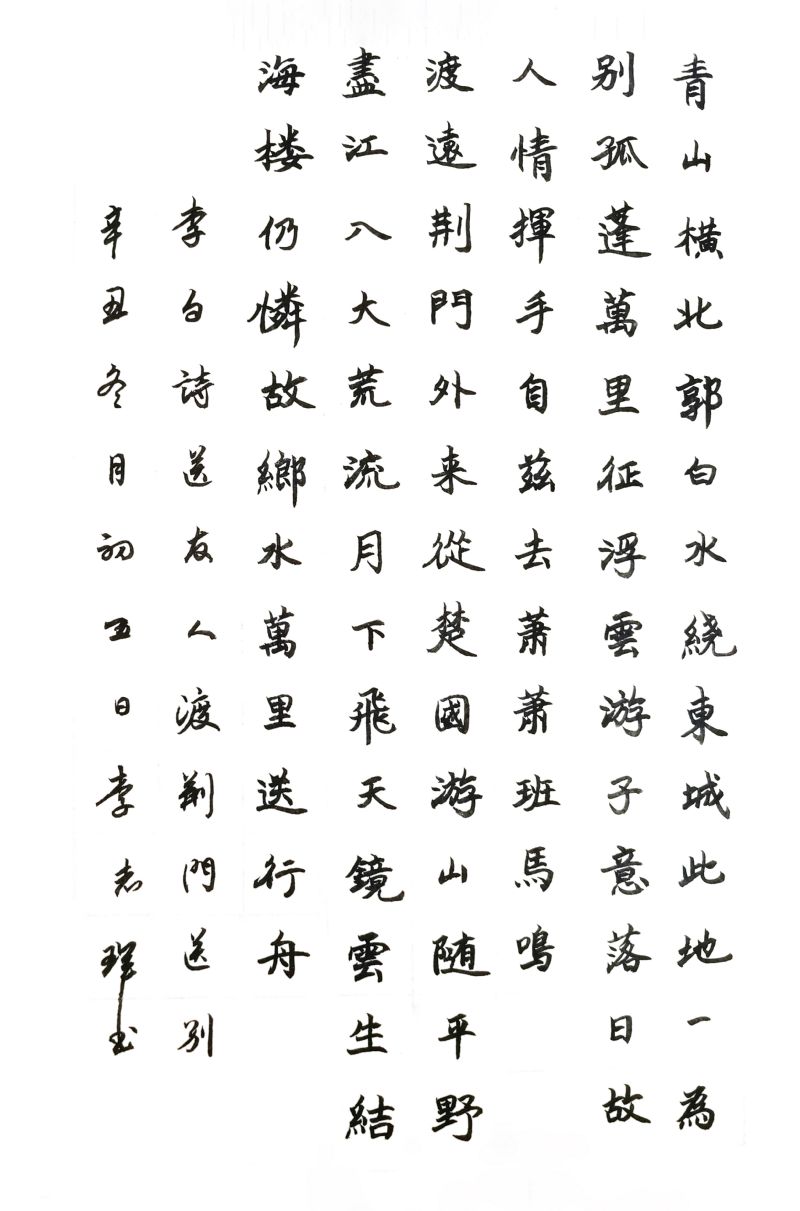 青山橫北郭白水繞東城此地一為
别孤蓬萬里征浮雲游子意落日故
人情揮手自茲去萧萧班馬鳴
渡遠荆門外来從楚國游山随平野
盡江入大荒流月下飛天鏡雲生結
海楼仍憐故鄉水萬里送行舟
李白詩送友人渡荆門送别
辛丑冬月初五日李志珲书